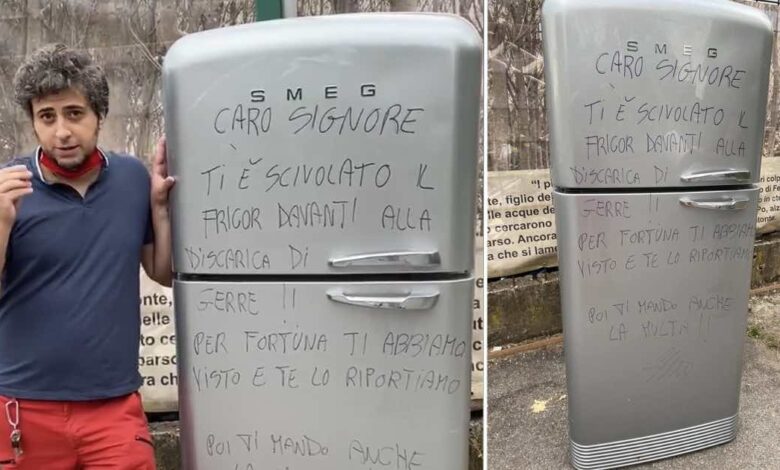 SMEG
CARO SIGNORE
TI È SCIVOLATO IL
FRIGOR DAVANTI ALLA
DISCARICA DI
GERRE !!
PER FORTUNA TI ABBIAMO
VISTO E TE LO RIPORTIAMO
POI TI MANDO ANCHE
onte,
nelle
cerc
parso
ra c
SMEG
CARO SIGNORE
TI È SCIVOLATO IL
FRIGOR DAVANTI ALLA
DISCARICA DI
GERRE !!
PER FORTUNA TI ABBIAMO
VISTO E TE LO RIPORTIAMO
POI TI MANDO ANCHE
LA MULTA !!
ente, figlio de
lle acque de
cercarono
parso. Ancora
che si lam